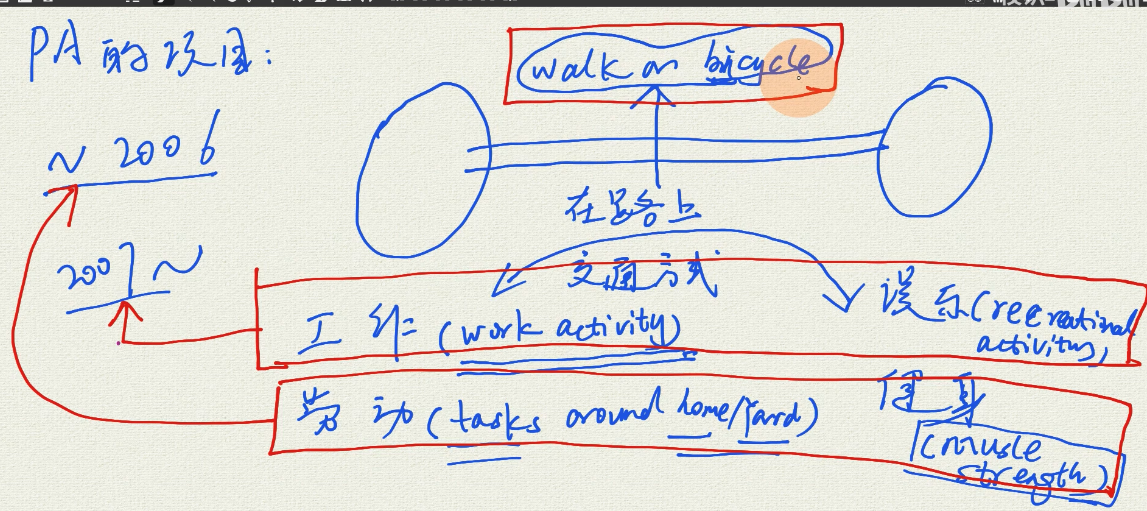 PA 的项目:
walk or bicycle
~ 2006
在路上
2007 ~
交通方式
工作 (work activity)
娱乐 (recreational
activity)
劳动 (tasks around home/yard)
健身
(muscle
strength)